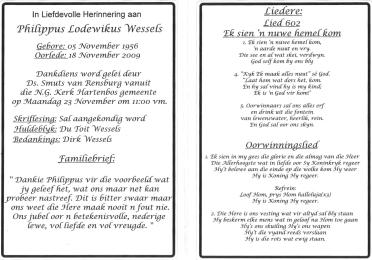 In Liefdevolle Herinnering aan
Philippus Lodewikus Wessels
Gebore: 05 November 1956
Oorlede: 18 November 2009
Dankdiens word gelei deur
Ds. Smuts van Rensburg vanuit
die N.G. Kerk Hartenbos gemeente
op Maandag 23 November om 11:00 vm.
Skriflesing: Sal aangekondig word
Huldeblyk: Du Toit Wessels
Bedankings: Dirk Wessels
Familiebrief:
" Dankie Philippus vir die voorbeeld wat
jy geleef het, wat ons maar net kan
probeer nastreef. Dit is bitter swaar maar
ons weet die Here maak nooit n fout nie.
Ons jubel oor n betekenisvolle, nederige
lewe, vol liefde en vol vreugde. "
Liedere:
Lied 602
Ek sien 'n nuwe hemel kom
1. Ek sien 'n nuwe hemel kom,
'n aarde nuut en vry.
Die see en al wat skei, verdwyn.
God self kom by ons bly
4. "Kyk Ek maak alles nuut" sê God.
"Laat hom wat dors het, kom.
En hy sal vind hy is my kind,
Ek is 'n God vir hom!
5. Oorwinnaars sal ons alles erf
en drink uit die fontein
van lewenswater, heerlik, rein.
En God sal oor ons skyn.
Oorwinningslied
1. Ek sien in my gees die glorie en die almag van die Heer
Die Allerhoogste wat in liefde oor Sy Koninkryk regeer
Hy't belowe aan die einde op die wolke kom Hy weer
Hy is Koning Hy regeer.
Refrein:
Loof Hom, prys Hom halleluja(x3)
Hy is Koning Hy regeer.
2. Die Here is ons vesting wat vir altyd sal bly staan
Hy beskerm elke mens wat in geloof na Hom toe gaan
Hy's ons skuiling Hy's ons wapen
Hy't die vyand reeds verslaan
Hy is die rots wat ewig staan.